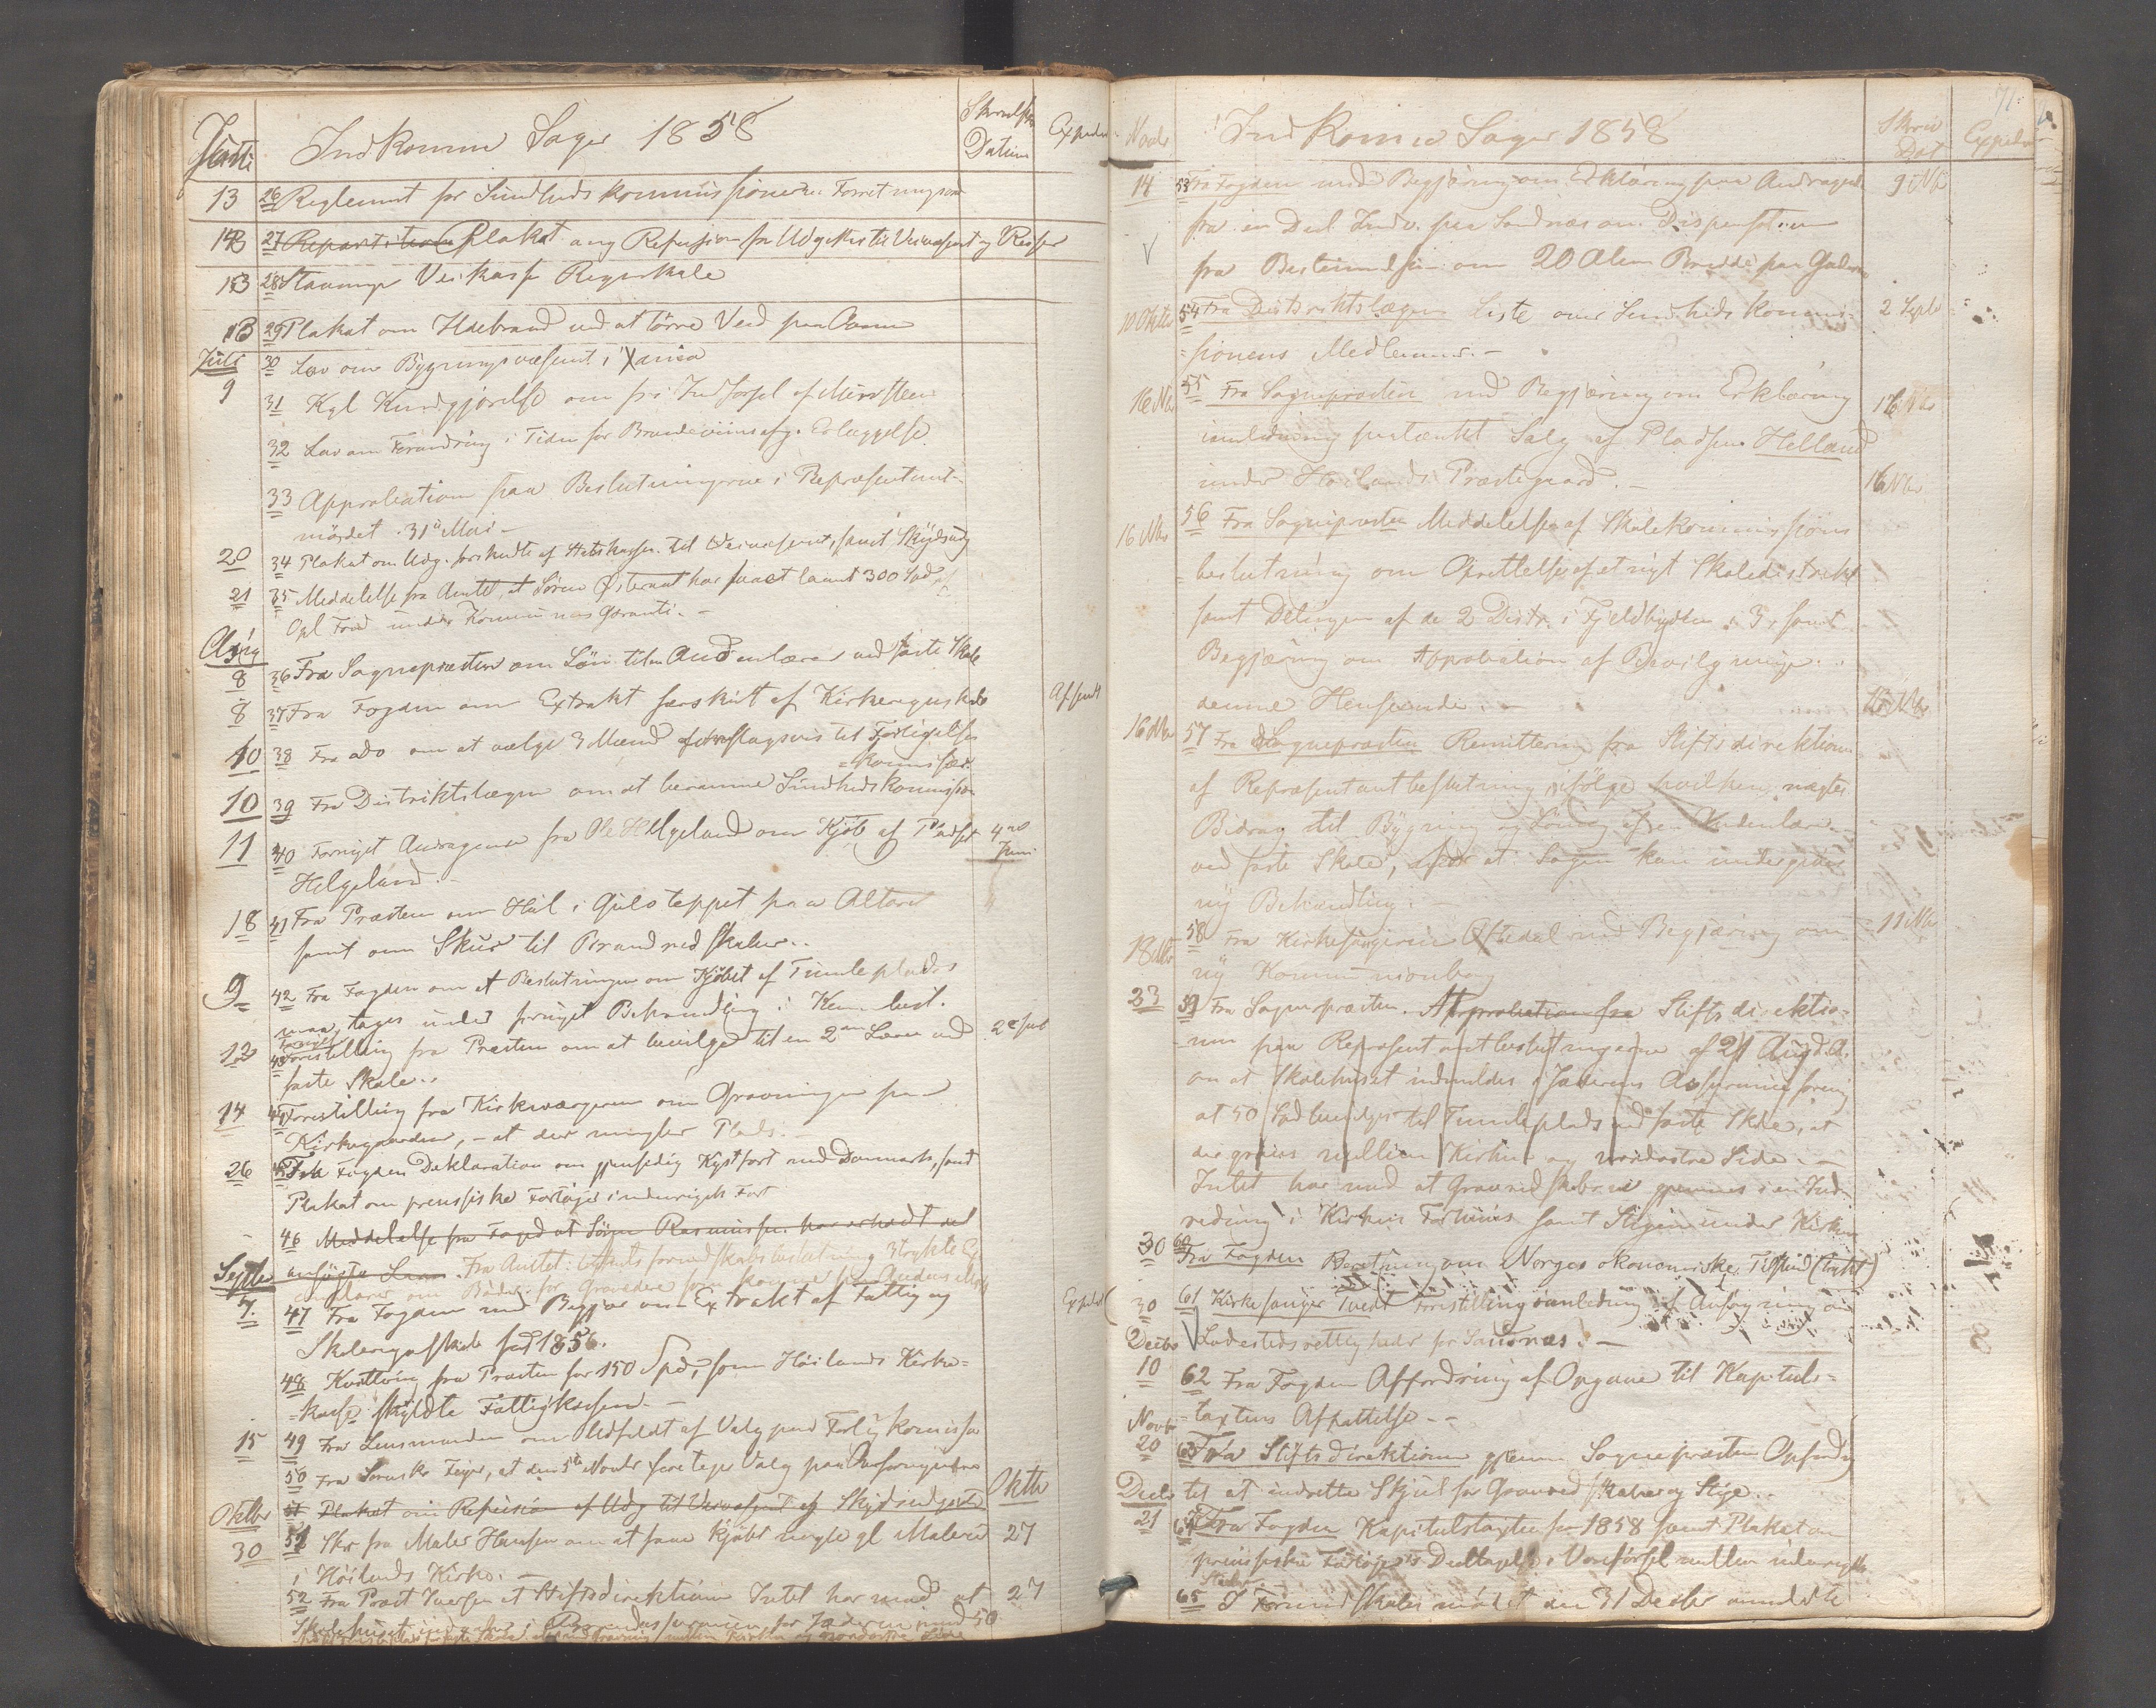 Indkomne Sager 1858
Skrivelsens Datum
Exped
13 26 Reglement for Sundhedskommissionerne Forretninger
13 27 Repartition Plakat ang Refusion for Udgifter til Veivæsent og Reiser
13 28 Stavanger Veikasse Regnskale
13 29 Plakat om Ildebrand ved at tørre Ved paa Ovne
Juli 30 Lov om Bygningsvæsenet i Xania
9 31 Kgl Kundgjørelse om fri Indførsel af Mursteen
32 Lov om Forandring i Tiden for Brændeviinsafg. Erlæggelse
33 Approbation paa Beslutningerne i Repræsentant-
mødet 31te Mai -
20 34 Plakat om Udg. forskudte af Statskassen til Veivæsenet, samt Skydsudg
21 35 Meddelelse fra Amtet, at Sören Østeraat har faaet laant 300 Spd af
Opl Fond under Kommunens Garanti. -
Aug
8 36 Fra Sognepræsten om Løn til en Andenlærer ved faste Skole
8 37 Fra Fogden om Extrakt særskilt af Kirkeregnskab
Afsendt
10 38 Fra do om at vælge 3 Mænd forslagsvis til Forligelses
=kommissær.
10 39 Fra Distriktslægen om at beramme Sundhedskommission
11 40 Fornyet Andragende fra Ole Helgeland om Kjøb af Pladset 4de Juni
Helgeland. -
18 41 Fra Præsten om Hul i Gulvteppet paa Alteret
samt om Skuur til Brandredskaber..
9 42 Fra Fogden om at Beslutningen om Kjøbet af Tumleplads
maa tages under fornyet Behandling i Kom. best.
12 43 Forestilling fra Præsten om at bevilge til en 2den Lærer ved
faste Skole..
14 44 Forestilling fra Kirkeværgerne om Gravningen paa
Kirkegaarden, - at der mangler Plads. -
26 45 Fra Fogden Deklaration om gjensidig Kystfart med Danmark, samt
Plakat om preussiske Fartøier i indenrigsk Fart
46 Meddelelse fra Foged at Sören Rasmussen har erholdt det
ansøgte Laan. Fra Amtet: Amtsformandskabsbeslutning 3 trykte Ex-
emplarer om Bøder for Grovedere som komme
Septbr
7. 47 Fra Fogden med Begjær om Extrakt af Fattig og
Exped
Skoleregnskab for 1856.
48 Kvittering fra Præsten for 150 Spd, som Høilands Kirke=
=kasse skyldte Fattigkassen. -
15 49 Fra Lensmanden om Udfaldet af Valg paa Forligkomisær
50 Fra Sorenskr Feyer, at den 5te Novbr foretages Valg paa
Oktbr 51 Plakat om Refusion af Udg til Veivæsenet og Skydsudgifter Oktbr
30 51 Skr fra Maler Hansen om at faae kjøbt nogle gl Malerier 27
i Høilands Kirke. -
52 Fra Præst Iversen at Stiftsdirektionen Intet har mod at 27
Skolehuset indmeldes i Brandassurancen for Jæderen, med 50
Novbr
Indkomne Sager 1858
Skriv Dat
Exped
71
14 53 Fra Fogden med Begjæring om Erklæring paa Andragende 9 Nbr
fra en Deel Indv. paa Sandnæs om Dispensation
fra Bestemmelsen om 20 Alen Bredde paa Gaderne
10 Oktbr 54 Fra Distriktslægen Liste over Sundhedskommis- 2 Septbr
=sionens Medlemmer. -
16 Nbr 55 Fra Sognepræsten med Begjæring om Erklæring 16 Nbr
i anledning paatænkt Salg af Pladsen Helland
under Høilands Præstegaard. - 16 Nbr
16 Nbr 56 Fra Sognepræsten Meddelelse af Skolekommissions
beslutning om Oprettelse af et nyt Skoledistrikt
samt Delingen af de 2 Distr. i Fjeldbygden i 3, samt
Begjæring om Approbation af Bevilgninge i
denne Henseende. -
16 Nbr 57 Fra Sognepræsten Remittering fra Stiftsdirektionen 16 Nbr
af Repræsentantbeslutning ifølge hvilken nægtes
Bidrag til Bygning og Lønning af en Andenlærer
ved faste Skole, for at Sagen kan undergives
ny Behandling. -
18 Nbr 58 Fra Kirkesangeren Oftedal med Begjæring om 11 Nbr
ny Kommunionbog
23 59 Fra Sognepræsten. Approbation fra Stiftsdirektio-
nen paa Repræsentantbeslutningerne af 21 Aug d. A.
om at Skolehuset indmeldes i Jæderens Assuranceforening
at 50 Spd bevilges til Tumleplads ved faste Skole, at
der graves mellem Kirken og nordøstre Side. -
Intet har mod at Gravredskaberne gjemmes i en Ind-
redning i Kirkens Forhuus samt Stigen under Kirken
30 60 Fra Fogden Beretning om Norges økonomiske Tilstand (trykt)
30 61 Kirkesanger Tvedt Forestilling i anledning af Ansøgning om
Decbr Ladestedsrettigheder for Sandnæs. -
10 62 Fra Fogden Affordring af Opgave til Kapituls=
=taxtens Affattelse. -
Novbr
20 63 Fra Stiftsdirektionen gjennem Sognepræsten Opfordring
Decbr til at indrette Skjul for Gravredskaber og Stige..
21 64 Fra Fogden Kapitulstaxten for 1858 samt Plakat om
preussiske Fartøiers Deeltagelse i Vareførsel mellem indenrigske
Steder
65 I Formandskabsmødet den 31 Decbr anmeldte